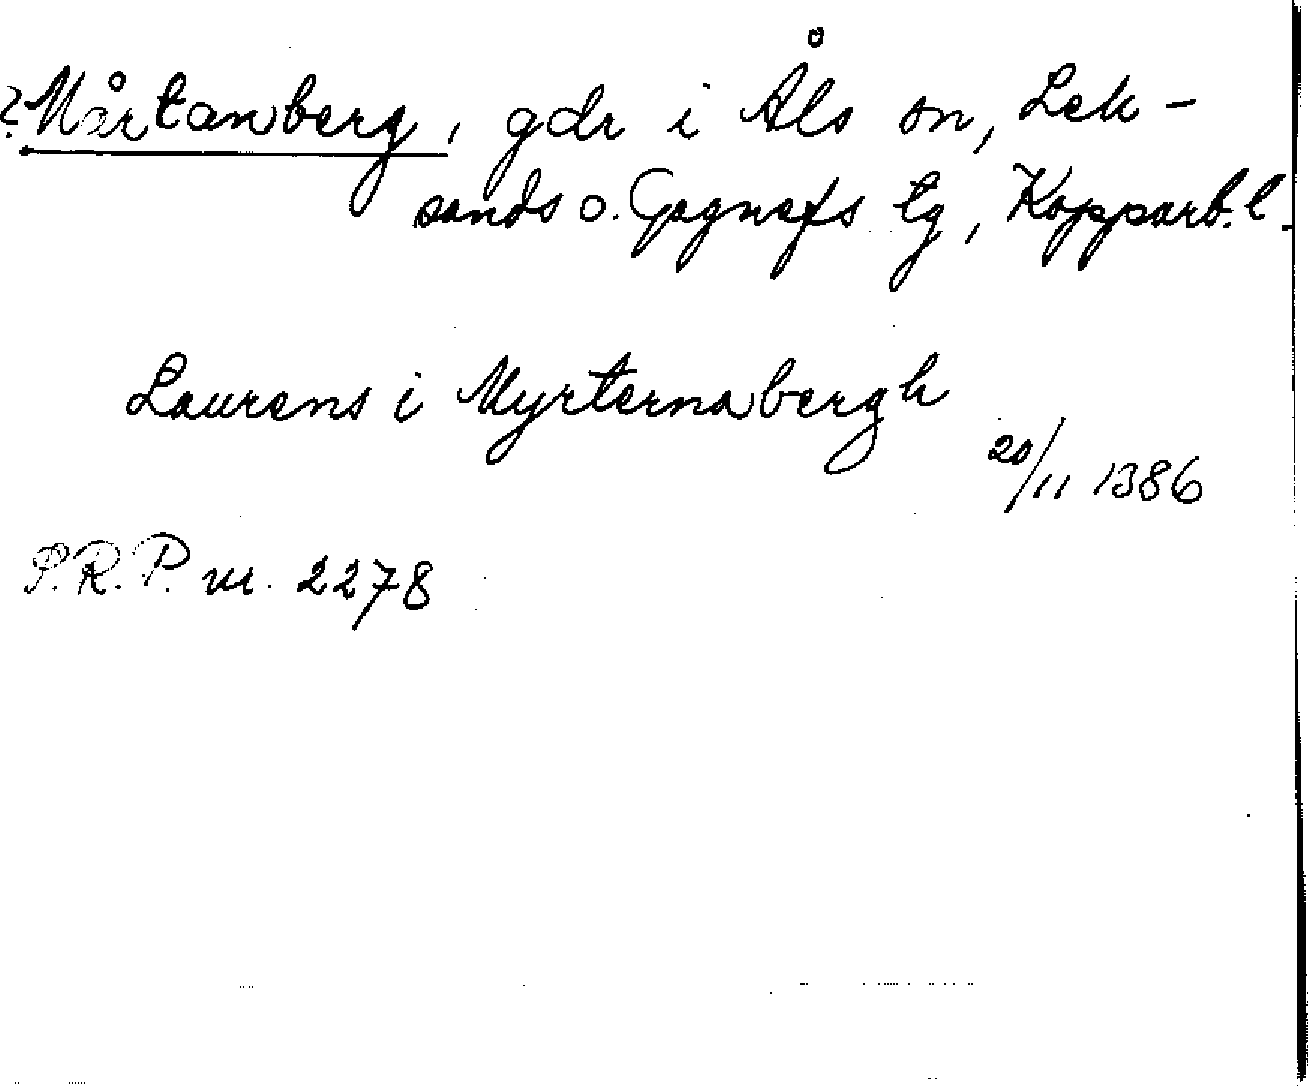 ? Mårtanberg, gdr i Åls sn, Lek-
sands o. Gagnefs tg, Kopparb. l.
Laurens i Myrternabergh
20/11 1386
P.R.P. nr. 2278